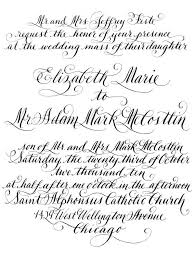 Mr. and Mrs. Jeffrey
request the honor of your presence
at the wedding mass of their daughter
Elizabeth Marie
to
Mr Adam Mark McCosttin
son of Mr. and Mrs. Mark McCosttin
Saturday, the twenty third of October
two thousand ten
at half after one o'clock in the afternoon
Saint Alphonsus Catholic Church
1429 West Wellington Avenue
Chicago